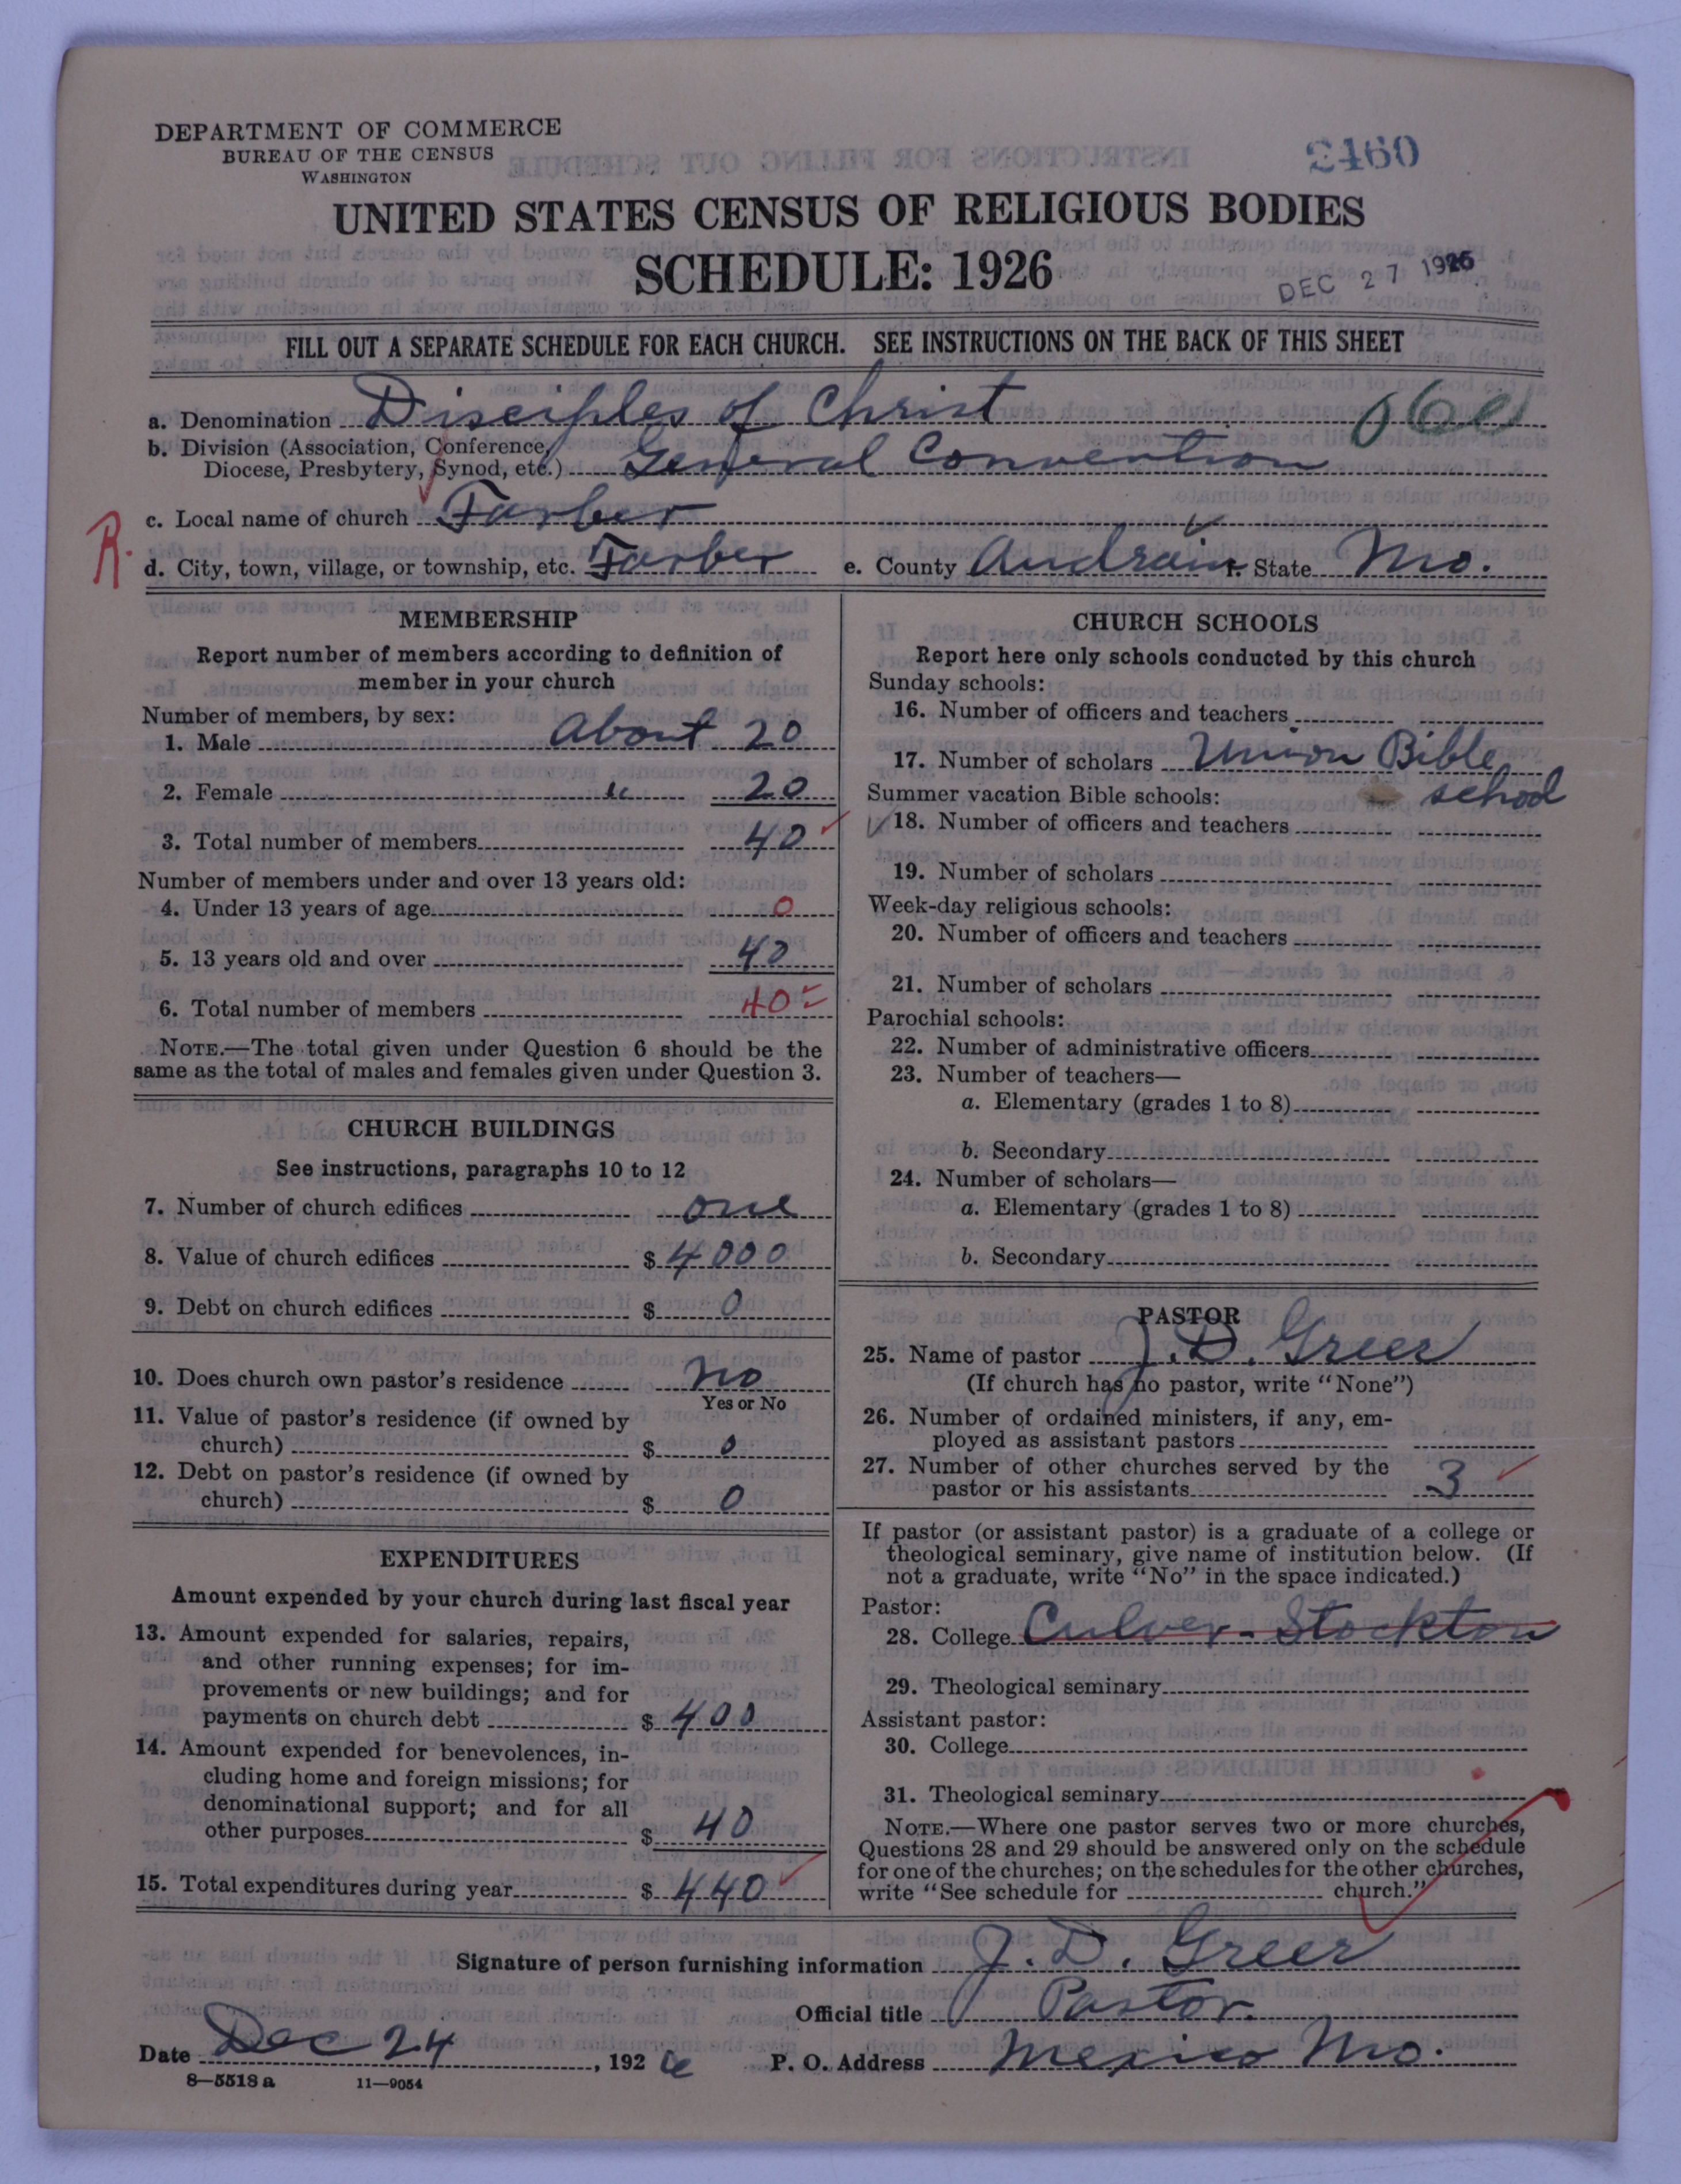 DEPARTMENT OF COMMERCE
BUREAU OF THE CENSUS
WASHINGTON
2460
UNITED STATES CENSUS OF RELIGIOUS BODIES
SCHEDULE: 1926
DEC 27 1926
FILL OUT A SEPARATE SCHEDULE FOR EACH CHURCH. SEE INSTRUCTIONS ON THE BACK OF THIS SHEET
a. Denomination Disciples of Christ
b. Division (Association, Conference, Diocese, Presbytery, Synod, etc.) General Convention
c. Local name of church Farber
R.
d. City, town, village, or township, etc. Farber e. County Audrain f. State Mo.
MEMBERSHIP
Report number of members according to definition of
member in your church
Number of members, by sex:
1. Male About 20
2. Female " 20
3. Total number of members 40
Number of members under and over 13 years old:
4. Under 13 years of age 0
5. 13 years old and over 40
6. Total number of members 40
NOTE.—The total given under Question 6 should be the
same as the total of males and females given under Question 3.
CHURCH BUILDINGS
See instructions, paragraphs 10 to 12
7. Number of church edifices one
8. Value of church edifices $ 4000
9. Debt on church edifices $ 0
10. Does church own pastor's residence No
Yes or No
11. Value of pastor's residence (if owned by
church) $ 0
12. Debt on pastor's residence (if owned by
church) $ 0
EXPENDITURES
Amount expended by your church during last fiscal year
13. Amount expended for salaries, repairs,
and other running expenses; for im-
provements or new buildings; and for
payments on church debt $ 400
14. Amount expended for benevolences, in-
cluding home and foreign missions; for
denominational support; and for all
other purposes $ 40
15. Total expenditures during year $ 440
CHURCH SCHOOLS
Report here only schools conducted by this church
Sunday schools:
16. Number of officers and teachers
17. Number of scholars Union Bible
school
Summer vacation Bible schools:
18. Number of officers and teachers
19. Number of scholars
Week-day religious schools:
20. Number of officers and teachers
21. Number of scholars
Parochial schools:
22. Number of administrative officers
23. Number of teachers—
a. Elementary (grades 1 to 8)
b. Secondary
24. Number of scholars—
a. Elementary (grades 1 to 8)
b. Secondary
PASTOR
25. Name of pastor J. D. Greer
(If church has no pastor, write "None")
26. Number of ordained ministers, if any, em-
ployed as assistant pastors
27. Number of other churches served by the
pastor or his assistants 3
If pastor (or assistant pastor) is a graduate of a college or
theological seminary, give name of institution below. (If
not a graduate, write "No" in the space indicated.)
Pastor:
28. College Culver-Stockton
29. Theological seminary
Assistant pastor:
30. College
31. Theological seminary
NOTE.—Where one pastor serves two or more churches,
Questions 28 and 29 should be answered only on the schedule
for one of the churches; on the schedules for the other churches,
write "See schedule for church."
Signature of person furnishing information J. D. Greer
Official title Pastor.
Date Dec 24, 1926 P. O. Address Mexico Mo.
8—5518 a 11—9054